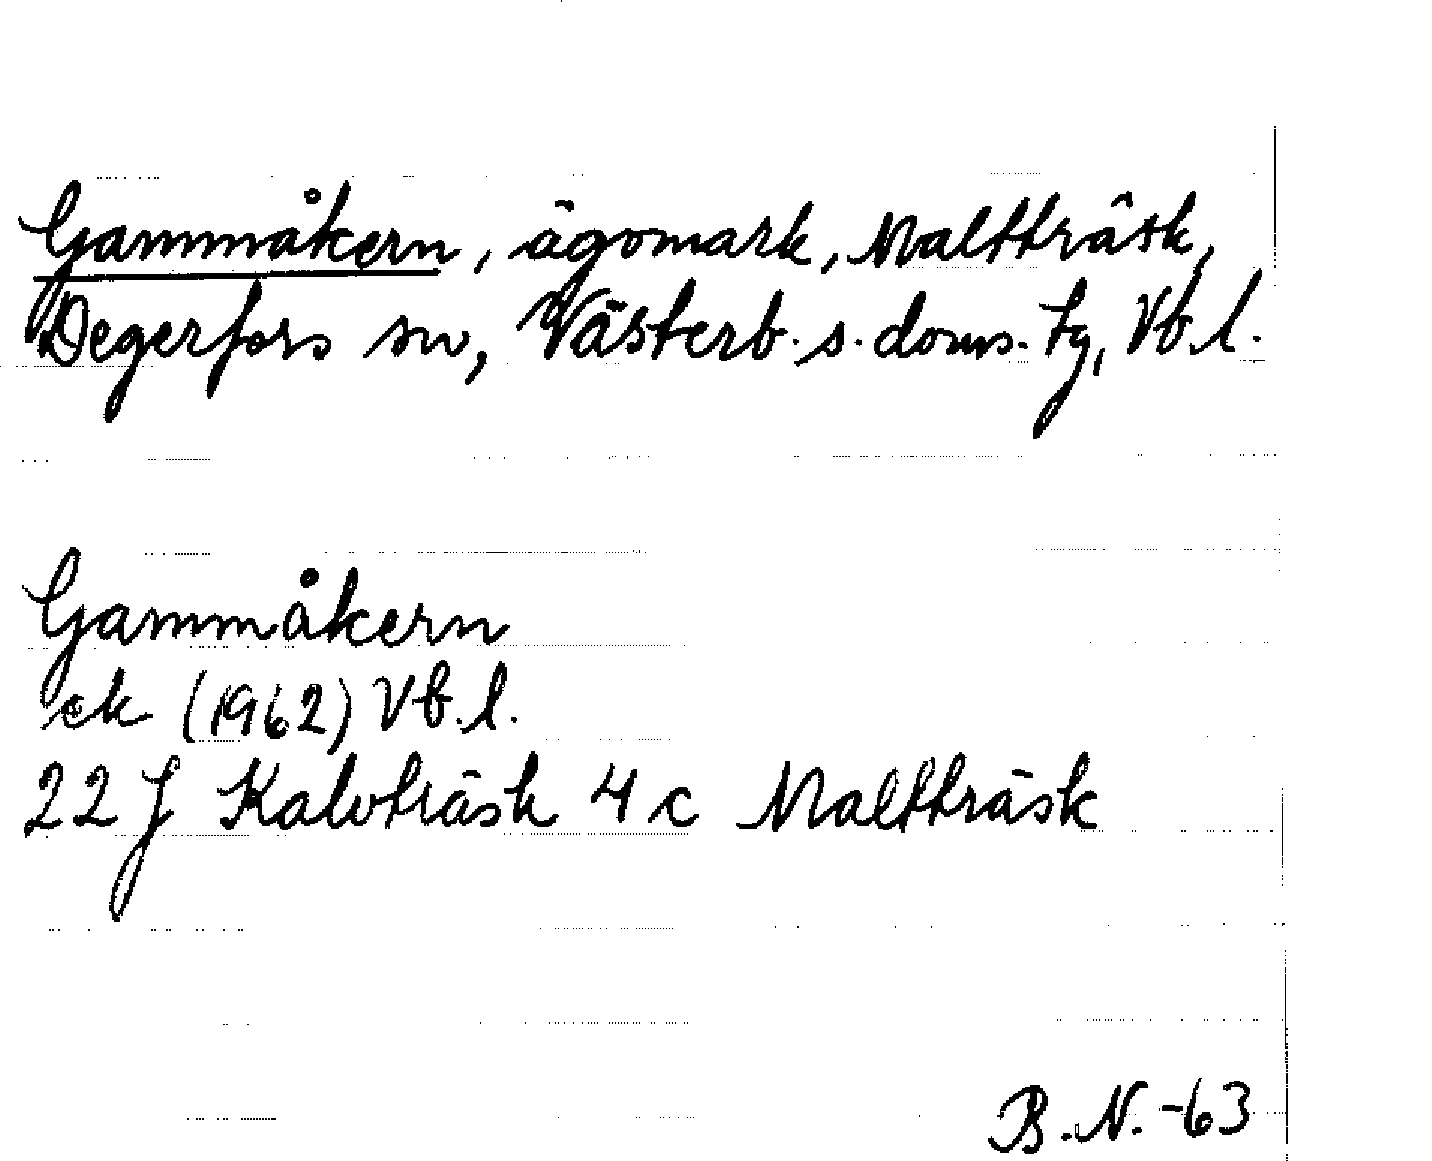 Gammåkern, ägomark, Maltträsk,
Degerfors sn, Västerb. s. doms. tg, Vb. l.
Gammåkern
ek (1962) Vb. l.
22 J Kalvträsk 4 c Maltträsk
B. N. -63